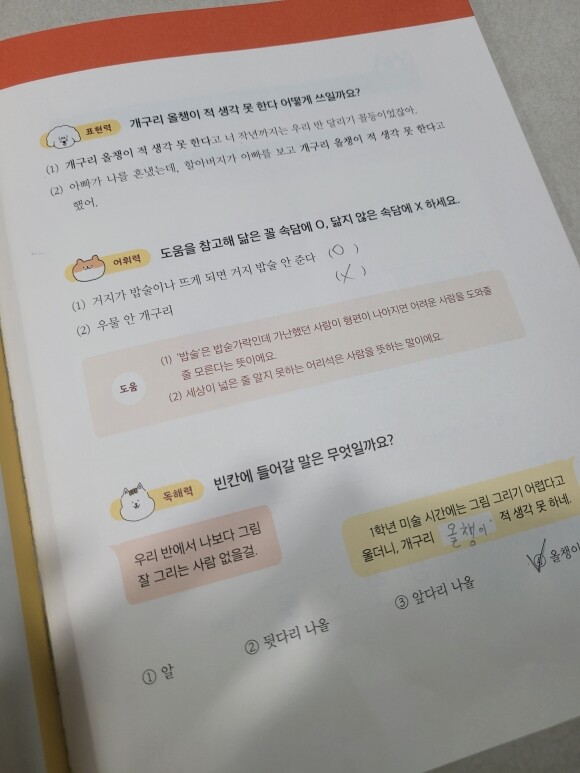 표현력 개구리 올챙이 적 생각 못 한다 어떻게 쓰일까요?
(1) 개구리 올챙이 적 생각 못 한다고 너 작년까지는 우리 반 달리기 꼴등이었잖아.
(2) 아빠가 나를 혼냈는데, 할아버지가 아빠를 보고 개구리 올챙이 적 생각 못 한다고
했어.
어휘력 도움을 참고해 닮은 꼴 속담에 O, 닮지 않은 속담에 X 하세요.
(1) 거지가 밥술이나 뜨게 되면 거지 밥술 안 준다 (O)
(2) 우물 안 개구리 (X)
도움
(1) '밥술'은 밥숟가락인데 가난했던 사람이 형편이 나아지면 어려운 사람을 도와줄
줄 모른다는 뜻이에요.
(2) 세상이 넓은 줄 알지 못하는 어리석은 사람을 뜻하는 말이에요.
독해력 빈칸에 들어갈 말은 무엇일까요?
우리 반에서 나보다 그림
잘 그리는 사람 없을걸.
1학년 미술 시간에는 그림 그리기 어렵다고
울더니, 개구리 올챙이 적 생각 못 하네.
① 알 ② 뒷다리 나올 ③ 앞다리 나올 ④ 올챙이